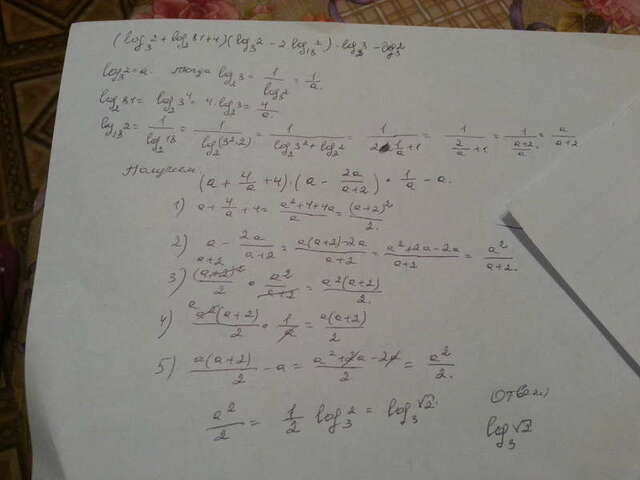 (log₃2 + log₂81 + 4)(log₃2 - 2log₁₈2) · log₂3 - log₃2
log₃2 = a. тогда log₂3 = 1/log₃2 = 1/a.
log₂81 = log₂3⁴ = 4·log₂3 = 4/a.
log₁₈2 = 1/log₂18 = 1/log₂(3²·2) = 1/(log₂3² + log₂2) = 1/(2·1/a + 1) = 1/(2/a + 1) = 1/((a+2)/a) = a/(a+2)
Получаем (a + 4/a + 4)·(a - 2a/(a+2)) · 1/a - a.
1) a + 4/a + 4 = (a² + 4 + 4a)/a = (a+2)²/2.
2) a - 2a/(a+2) = (a(a+2) - 2a)/(a+2) = (a² + 2a - 2a)/(a+2) = a²/(a+2).
3) (a+2)²/2 · a²/(a+2) = a²(a+2)/2.
4) a²(a+2)/2 · 1/a = a(a+2)/2
5) a(a+2)/2 - a = (a² + 2a - 2a)/2 = a²/2.
a²/2 = 1/2 log₃2 = log₃√2.
Ответ:
log₃√2